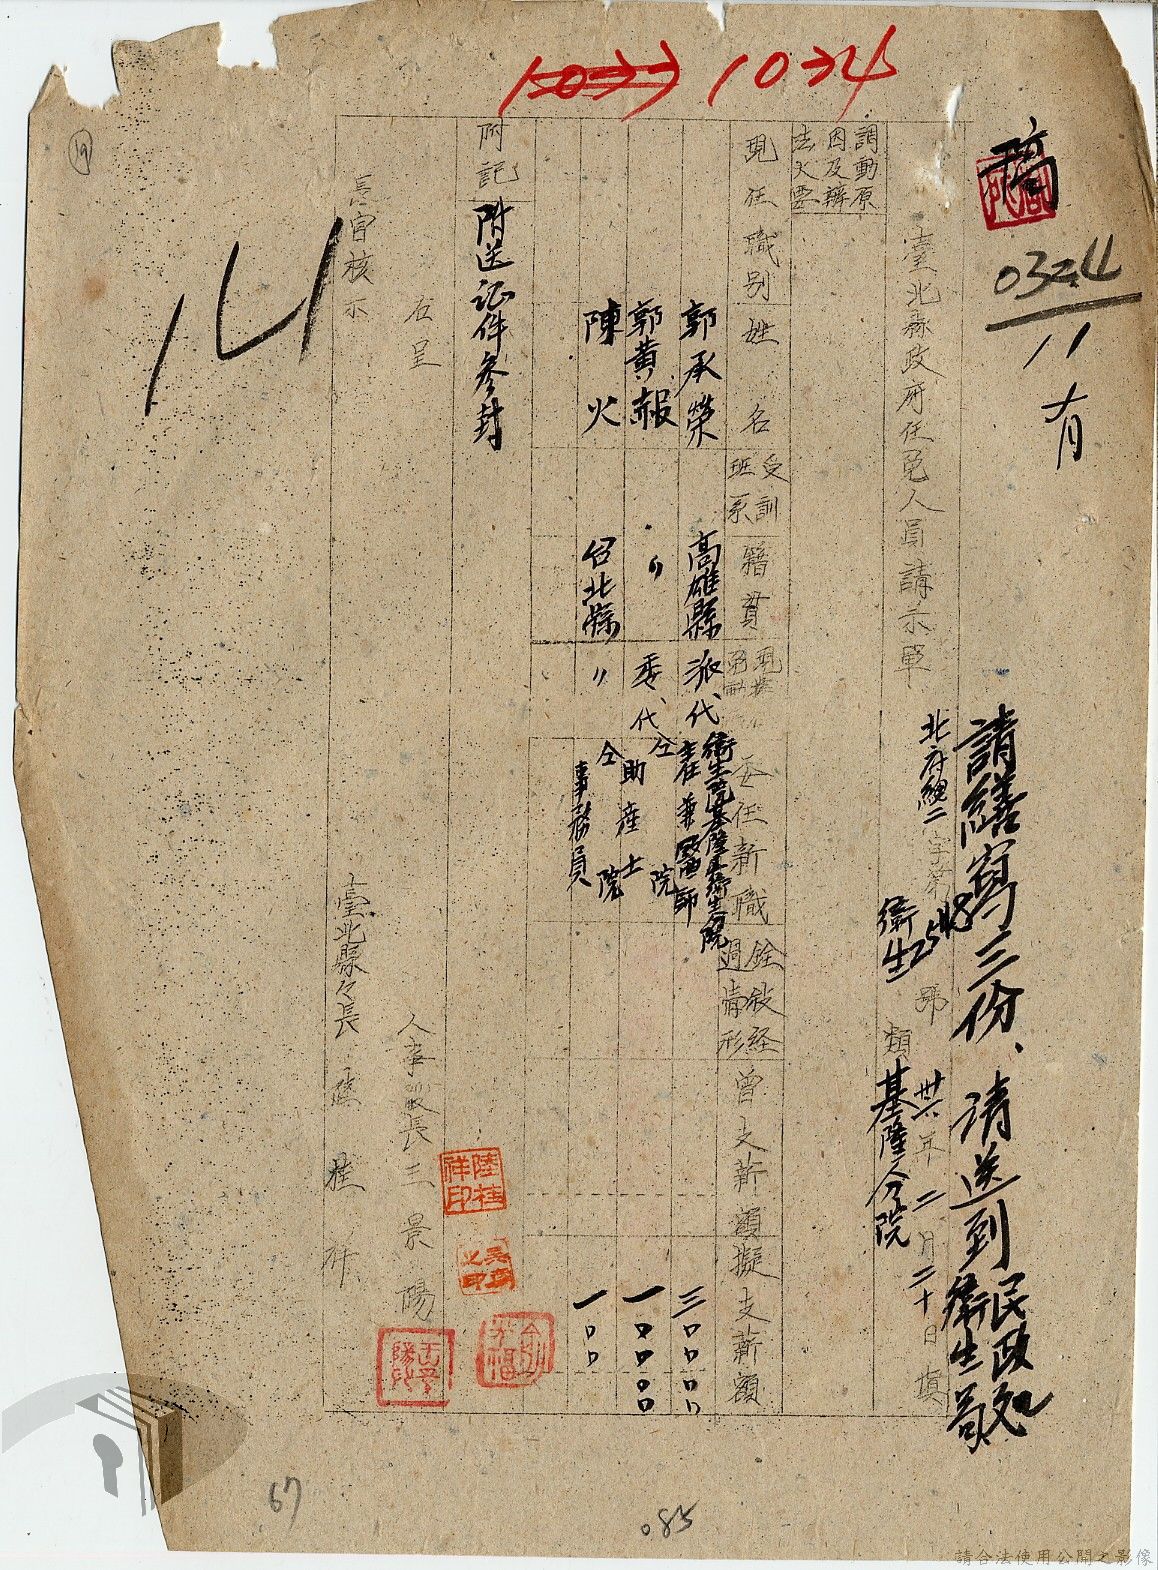 10224
稿
0324
11
臺北縣政府任免人員請示單
請繕寫三份、請送到民政處衛生局
北府總二字第2548號
卅六年二月二十日填
衛生類基隆分院
調動原因及辦法大要
現任職別
姓名
受訓班系
籍貫
委任新職
銓敘經過情形
曾支薪額
擬支薪額
郭承榮
高雄縣
派代
衛生院基隆區衛生分院主任兼醫師
三〇〇〇〇
郭黃報
〃
委代
仝院助產士
一〇〇〇〇
陳火
台北縣
〃
仝院事務員
一〇〇
附記
附送証件參封
右呈
長官核示
人事股長王景陽
臺北縣々長陸桂祥
陸桂祥印
14
19
67
085
請合法使用公開之影像